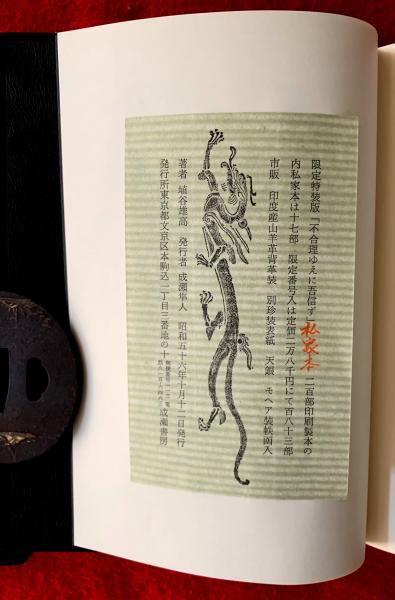 限定特装版『不合理ゆえに吾信ず』私家本 二百部印刷製本の
内私家本は十七部 限定番号入は定価二万八千円にて百八十三部
市販 印度産山羊革背革装 別珍装表紙 天銀 モヘア装帙函入
著者 埴谷雄高 発行者 成瀬隼人 昭和五十六年十月十二日発行
発行所東京都文京区本駒込二丁目三番地の十 成瀬書房